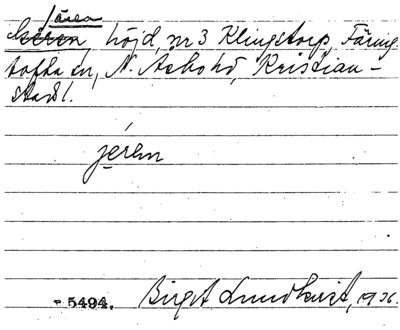 Jären
höjd, nr 3 Klingstorp, Färing-
tofta sn, N. Åsbo hd, Kristian-
stads l.
jeren
P 5494. Birgit Lundqvist, 1926.